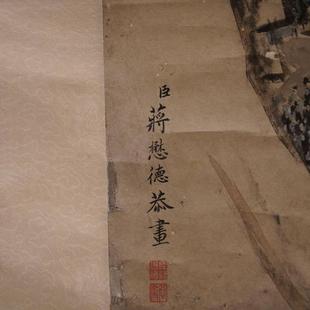 臣蔣懋德恭畫